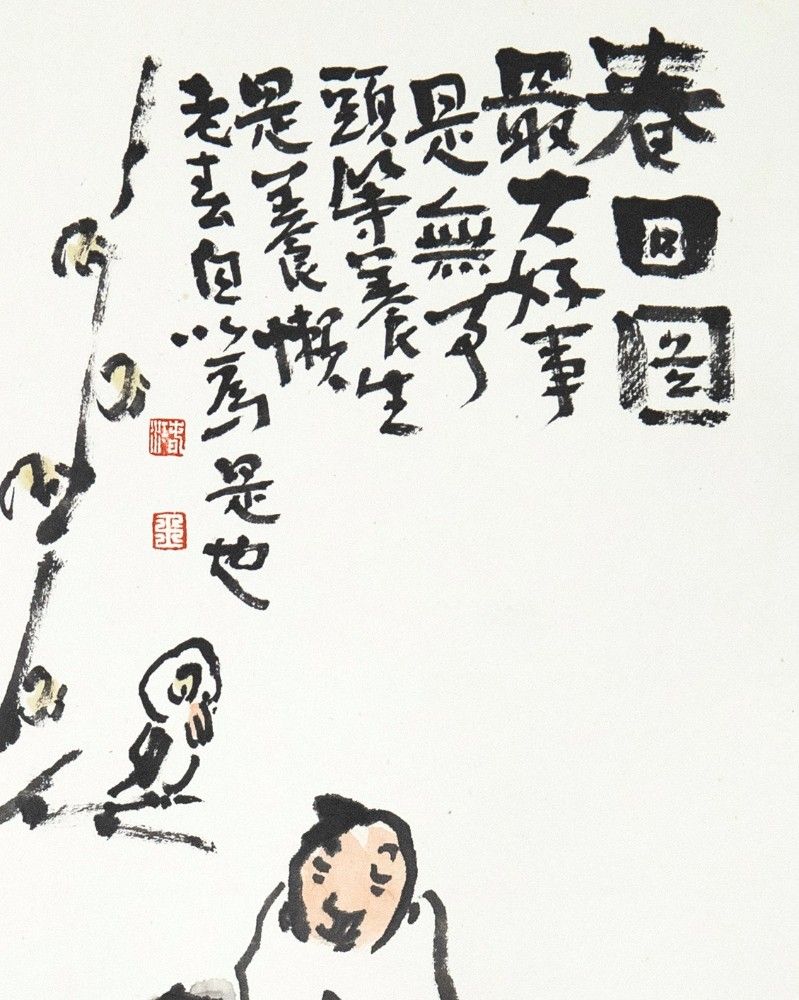 春回图
最大好事
是無事
頭等養生
是養懶
老去自以為是也